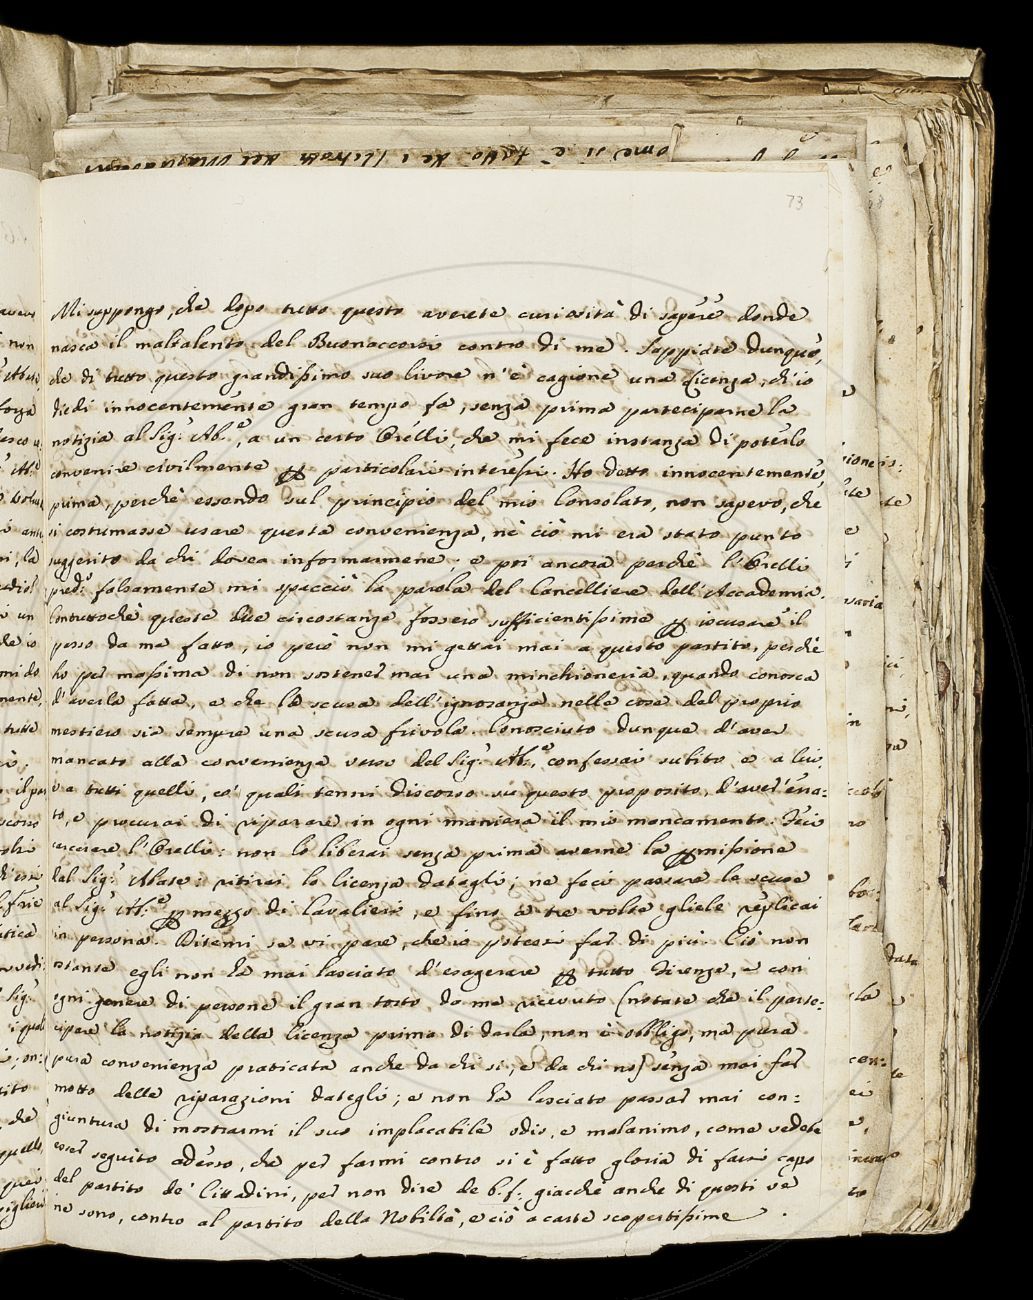 73
Mi suppongo, che dopo tutto questo averete curiosità di sapere donde
nasca il maltalento del Buonaccorsi contro di me. Sappiate dunque,
che di tutto questo grandissimo suo livore n'è cagione una licenza, ch'io
diedi innocentemente gran tempo fa, senza prima parteciparne la
notizia al Sig.r Ab.e, a un certo Orelli, che mi fece instanza di poterlo
convenire civilmente per particolari interessi. Ho detto innocentemente,
prima, perchè essendo sul principio del mio Consolato, non sapevo, che
si costumasse usare questa convenienza, nè ciò mi era stato punto
suggerito da chi dovea informarmene; e poi ancora perchè l'Orelli
pred.o falsamente mi spacciò la parola del Cancelliere dell'Accademia.
Contuttochè queste due circostanze fossero sufficientissime per iscusare il
perso da me fatto, io però non mi gettai mai a questo partito, perchè
ho per massima di non sostener mai una minchioneria, quando conosca
d'averla fatta, e che la scusa dell'ignoranza nelle cose del proprio
mestiero sia sempre una scusa frivola. Conosciuto dunque d'aver
mancato alla convenienza verso del Sig.r Ab.e, confessai subito, e a lui,
e a tutti quelli, co' quali tenni discorso su questo proposito, d'aver erra=
to, e procurai di riparare in ogni maniera il mio mancamento. Feci
carcerare l'Orelli: non lo liberai senza prima averne la permissione
dal Sig.r Abate: ritirai la licenza datagli; ne feci passare le scuse
al Sig.r Ab.e per mezzo di Cavalieri, e fino a tre volte gliele replicai
in persona. Ditemi se vi pare, che io potessi far di più. Ciò non
ostante egli non ha mai lasciato d'esagerare per tutto Firenze, e con
ogni genere di persone il gran torto da me ricevuto (notate che il parte=
cipare la notizia della licenza prima di darla, non è obbligo, ma pura
pura convenienza praticata anche da chi si, e da chi no) senza mai far
motto delle riparazioni dategli; e non ha lasciato passar mai con=
giuntura di mostrarmi il suo implacabile odio, e malanimo, come vedete
esser seguito adesso, che per farmi contro si è fatto gloria di farsi capo
del partito de' Cittadini, per non dire de b.f. giacchè anche di questi ve
ne sono, contro al partito della Nobiltà, e ciò a carte scopertissime.